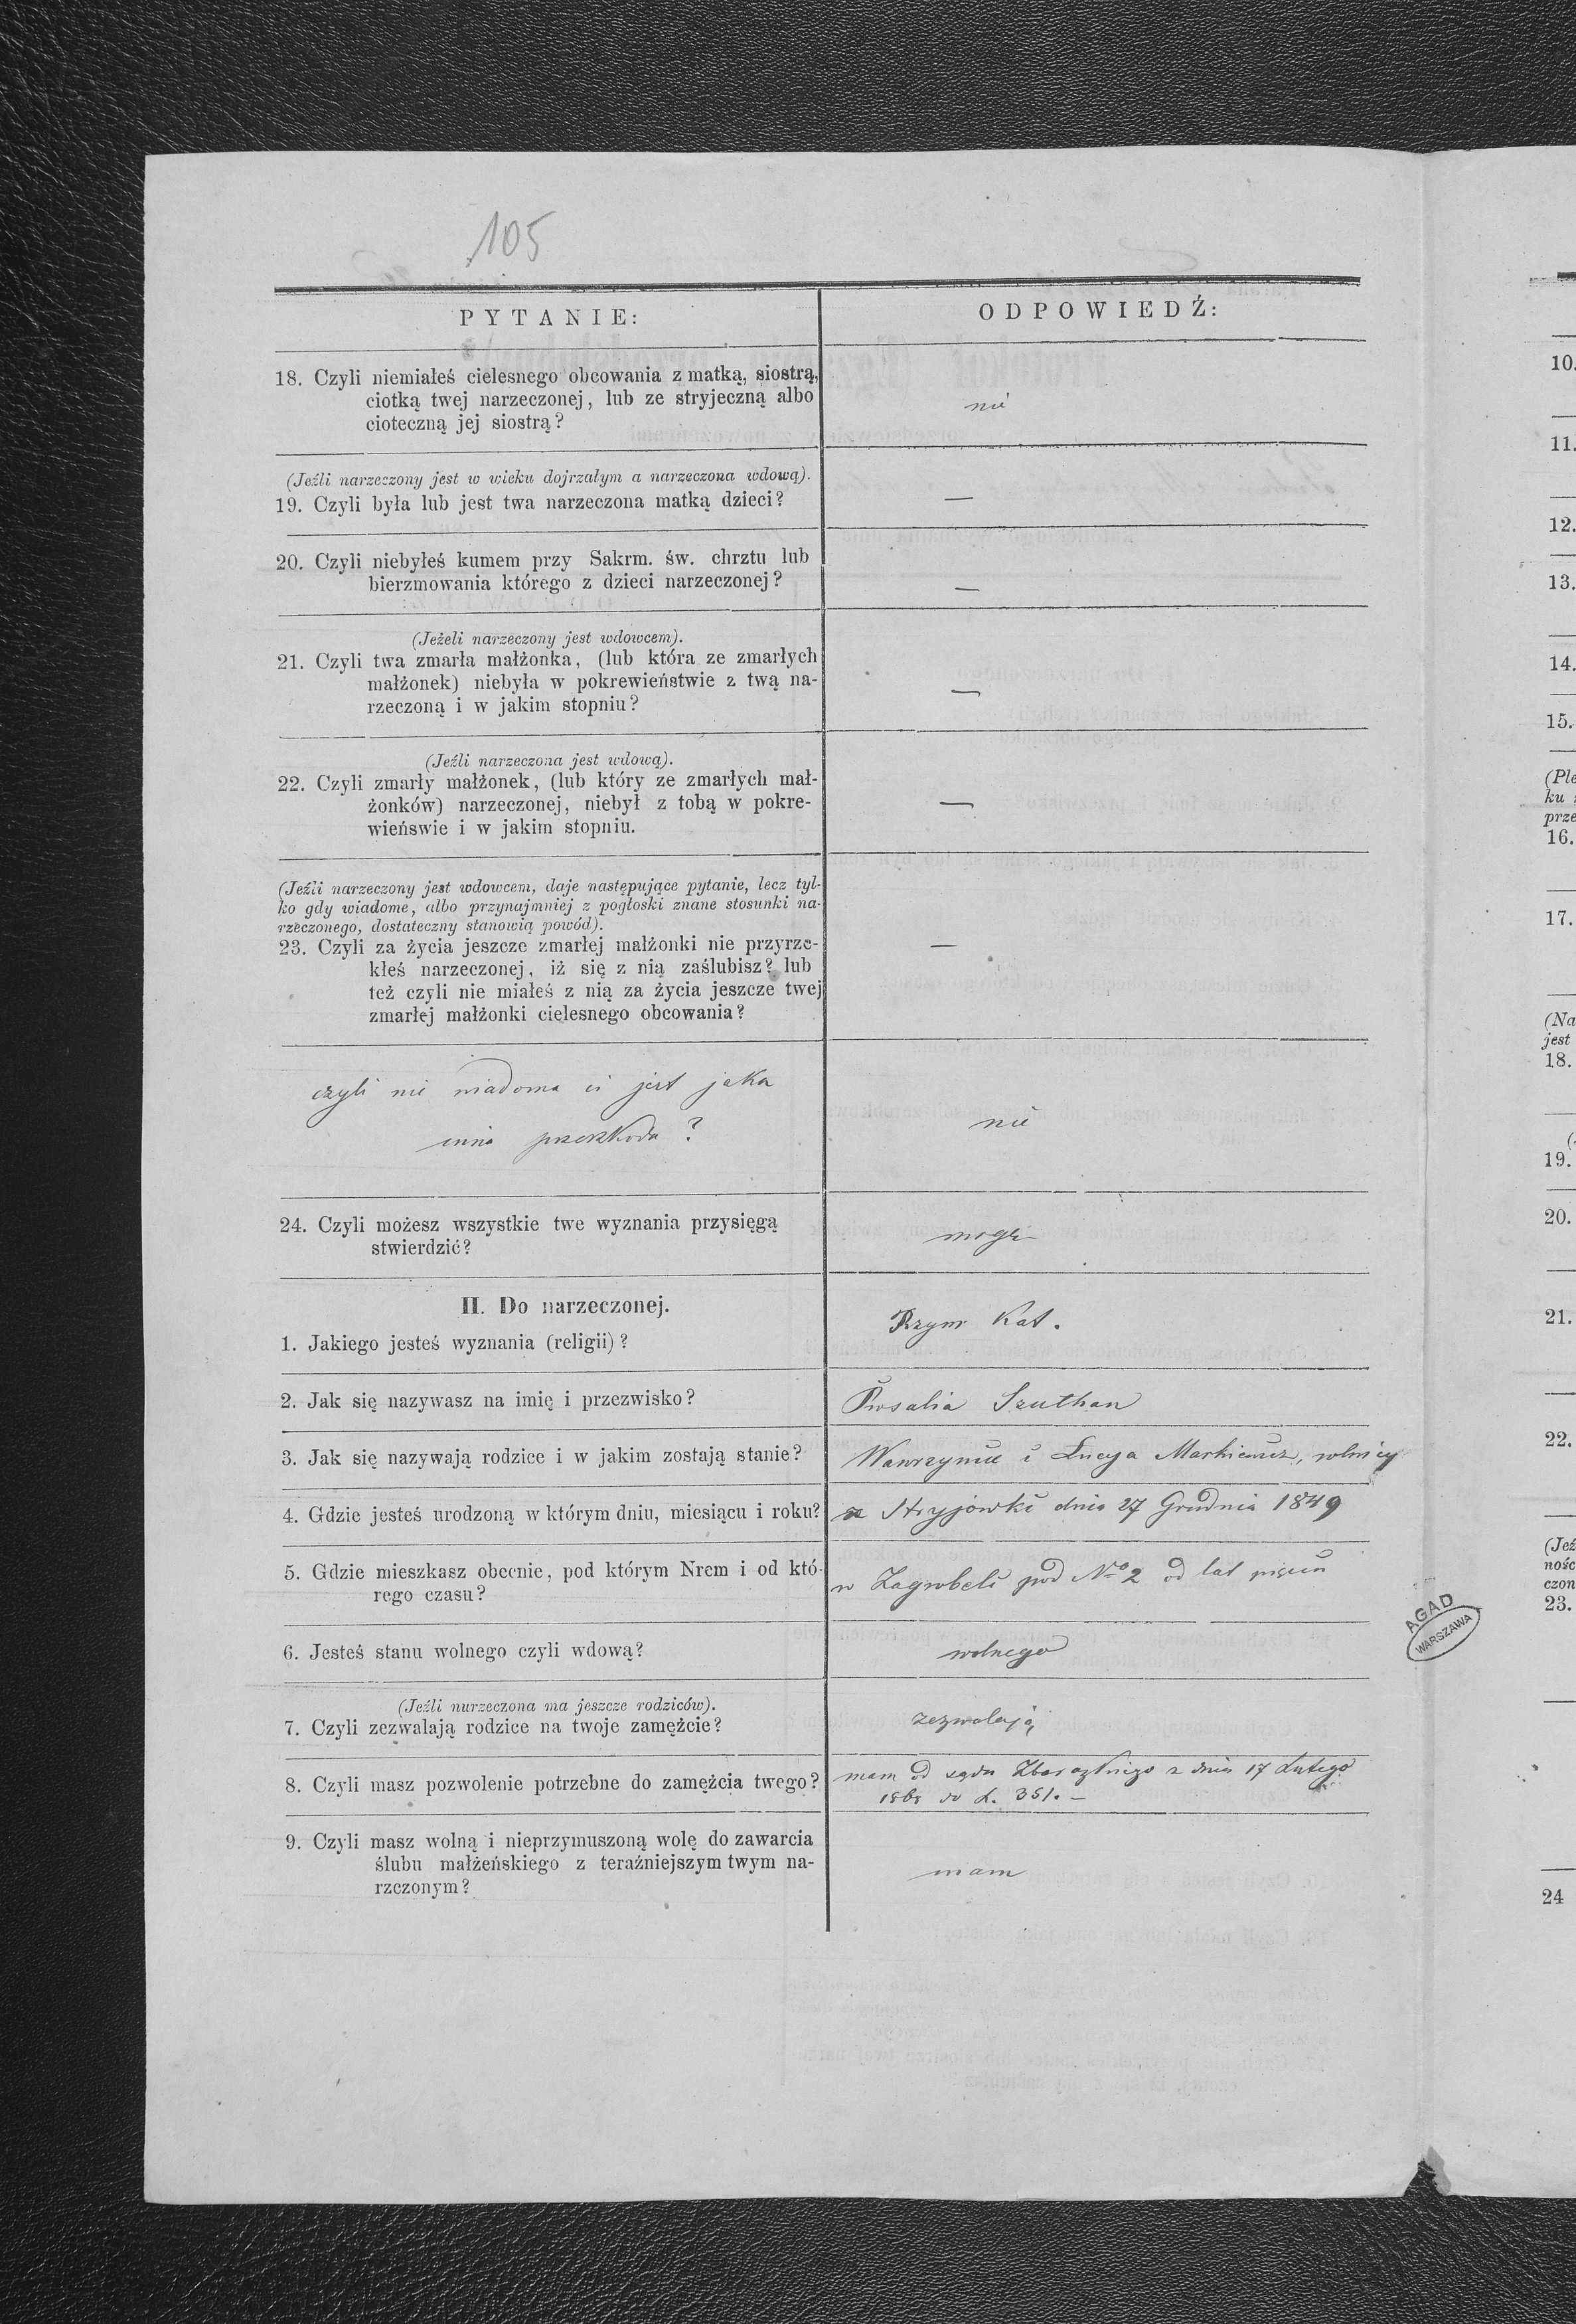 105
PYTANIE:
ODPOWIEDŹ:
18. Czyli niemiałeś cielesnego obcowania z matką, siostrą,
ciotką twej narzeczonej, lub ze stryjeczną albo
cioteczną jej siostrą?
nie
(Jeźli narzeczony jest w wieku dojrzałym a narzeczona wdową).
19. Czyli była lub jest twa narzeczona matką dzieci?
—
20. Czyli niebyłeś kumem przy Sakrm. św. chrztu lub
bierzmowania którego z dzieci narzeczonej?
—
(Jeżeli narzeczony jest wdowcem).
21. Czyli twa zmarła małżonka, (lub która ze zmarłych
małżonek) niebyła w pokrewieństwie z twą na-
rzeczoną i w jakim stopniu?
—
(Jeźli narzeczona jest wdową).
22. Czyli zmarły małżonek, (lub który ze zmarłych mał-
żonków) narzeczonej, niebył z tobą w pokre-
wieńswie i w jakim stopniu.
—
(Jeźli narzeczony jest wdowcem, daje następujące pytanie, lecz tyl-
ko gdy wiadome, albo przynajmniej z pogłoski znane stosunki na-
rzeczonego, dostateczny stanowią powód).
23. Czyli za życia jeszcze zmarłej małżonki nie przyrze-
kłeś narzeczonej, iż się z nią zaślubisz? lub
też czyli nie miałeś z nią za życia jeszcze twej
zmarłej małżonki cielesnego obcowania?
—
czyli nie wiadoma ci jest jaka
inna przeszkoda?
nie
24. Czyli możesz wszystkie twe wyznania przysięgą
stwierdzić?
mogę
II. Do narzeczonej.
1. Jakiego jesteś wyznania (religii)?
Rzym Kat.
2. Jak się nazywasz na imię i przezwisko?
Rosalia Szuthan
3. Jak się nazywają rodzice i w jakim zostają stanie?
Wawrzyniec i Łucya Markiewicz, rolnicy
4. Gdzie jesteś urodzoną w którym dniu, miesiącu i roku?
Stryjówki dnia 27 Grudnia 1849
5. Gdzie mieszkasz obecnie, pod którym Nrem i od któ-
rego czasu?
w Zagrobeli pod No 2 od lat pięciu
6. Jesteś stanu wolnego czyli wdową?
wolnego
(Jeźli nurzeczona ma jeszcze rodziców).
7. Czyli zezwalają rodzice na twoje zamężcie?
zezwalają
8. Czyli masz pozwolenie potrzebne do zamężcia twego?
mam od sądu Zbarazkiego z dnia 17 Lutego
1868 do L. 351. –
9. Czyli masz wolną i nieprzymuszoną wolę do zawarcia
ślubu małżeńskiego z teraźniejszym twym na-
rzczonym?
mam
AGAD
WARSZAWA
10.
11.
12.
13.
14.
15.
(Ple
ku
prze
16.
17.
(Na
jest
18.
19.
20.
21.
22.
(Jeź
nośc
czon
23.
24